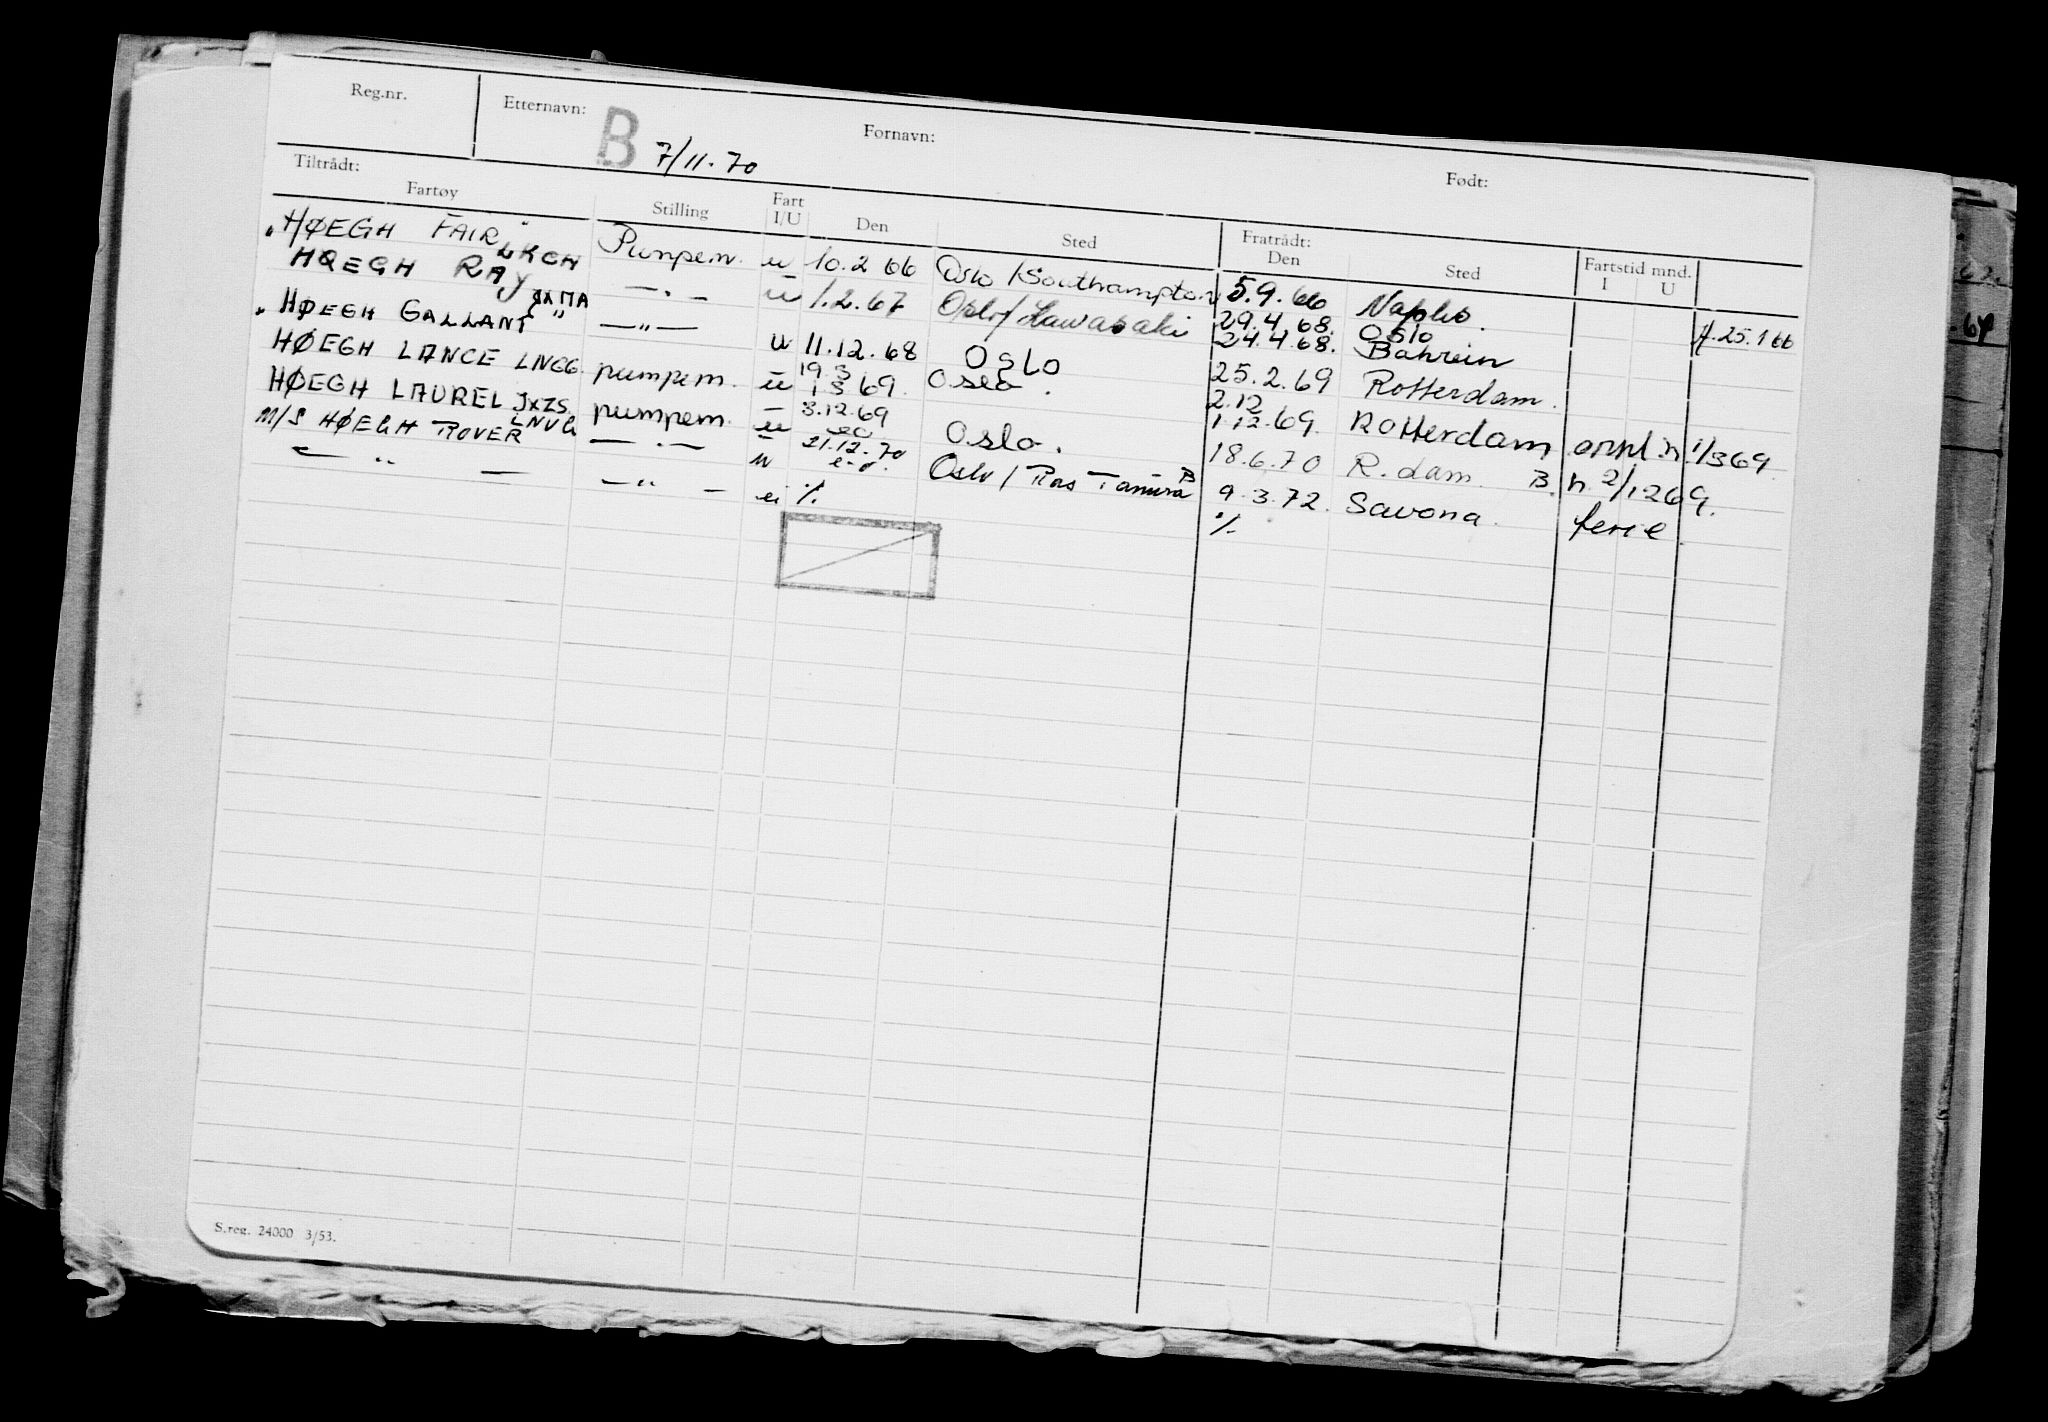 Reg.nr. Etternavn: B 7/11.70 Fornavn: Født:
Tiltrådt: Fratrådt:
Fartøy Stilling Fart I/U Den Sted Den Sted Fartstid mnd. I U
"HØEGH FAIR" LKCH Pumpem. u 10.2 66 Oslo/Southampton 5.9.66 Naples. A.25.1 66
HØEGH RAY JXMA — " — u 1.2.67 Oslo/Kawasaki 29.4.68. Oslo
24.4.68. Bahrein
"HØEGH GALLANT" — " — u 11.12.68 Oslo 25.2.69 Rotterdam.
HØEGH LANCE LNGG. pumpem. u 19.3 1.3 69. Oslo. 2.12 1.12.69. Rotterdam ompl. n. 1/3 69
HØEGH LAUREL JXZS pumpem. u 3.12.69 Oslo. 18.6.70 R.dam. B. n 2/12 69.
M/S HØEGH ROVER LNVG — " — u 21.12.70 Oslo/Ras Tanura B 9.3.72. Savona. ferie.
— " — — " — %. %.
S.reg. 24000 3/53.
62.
.64